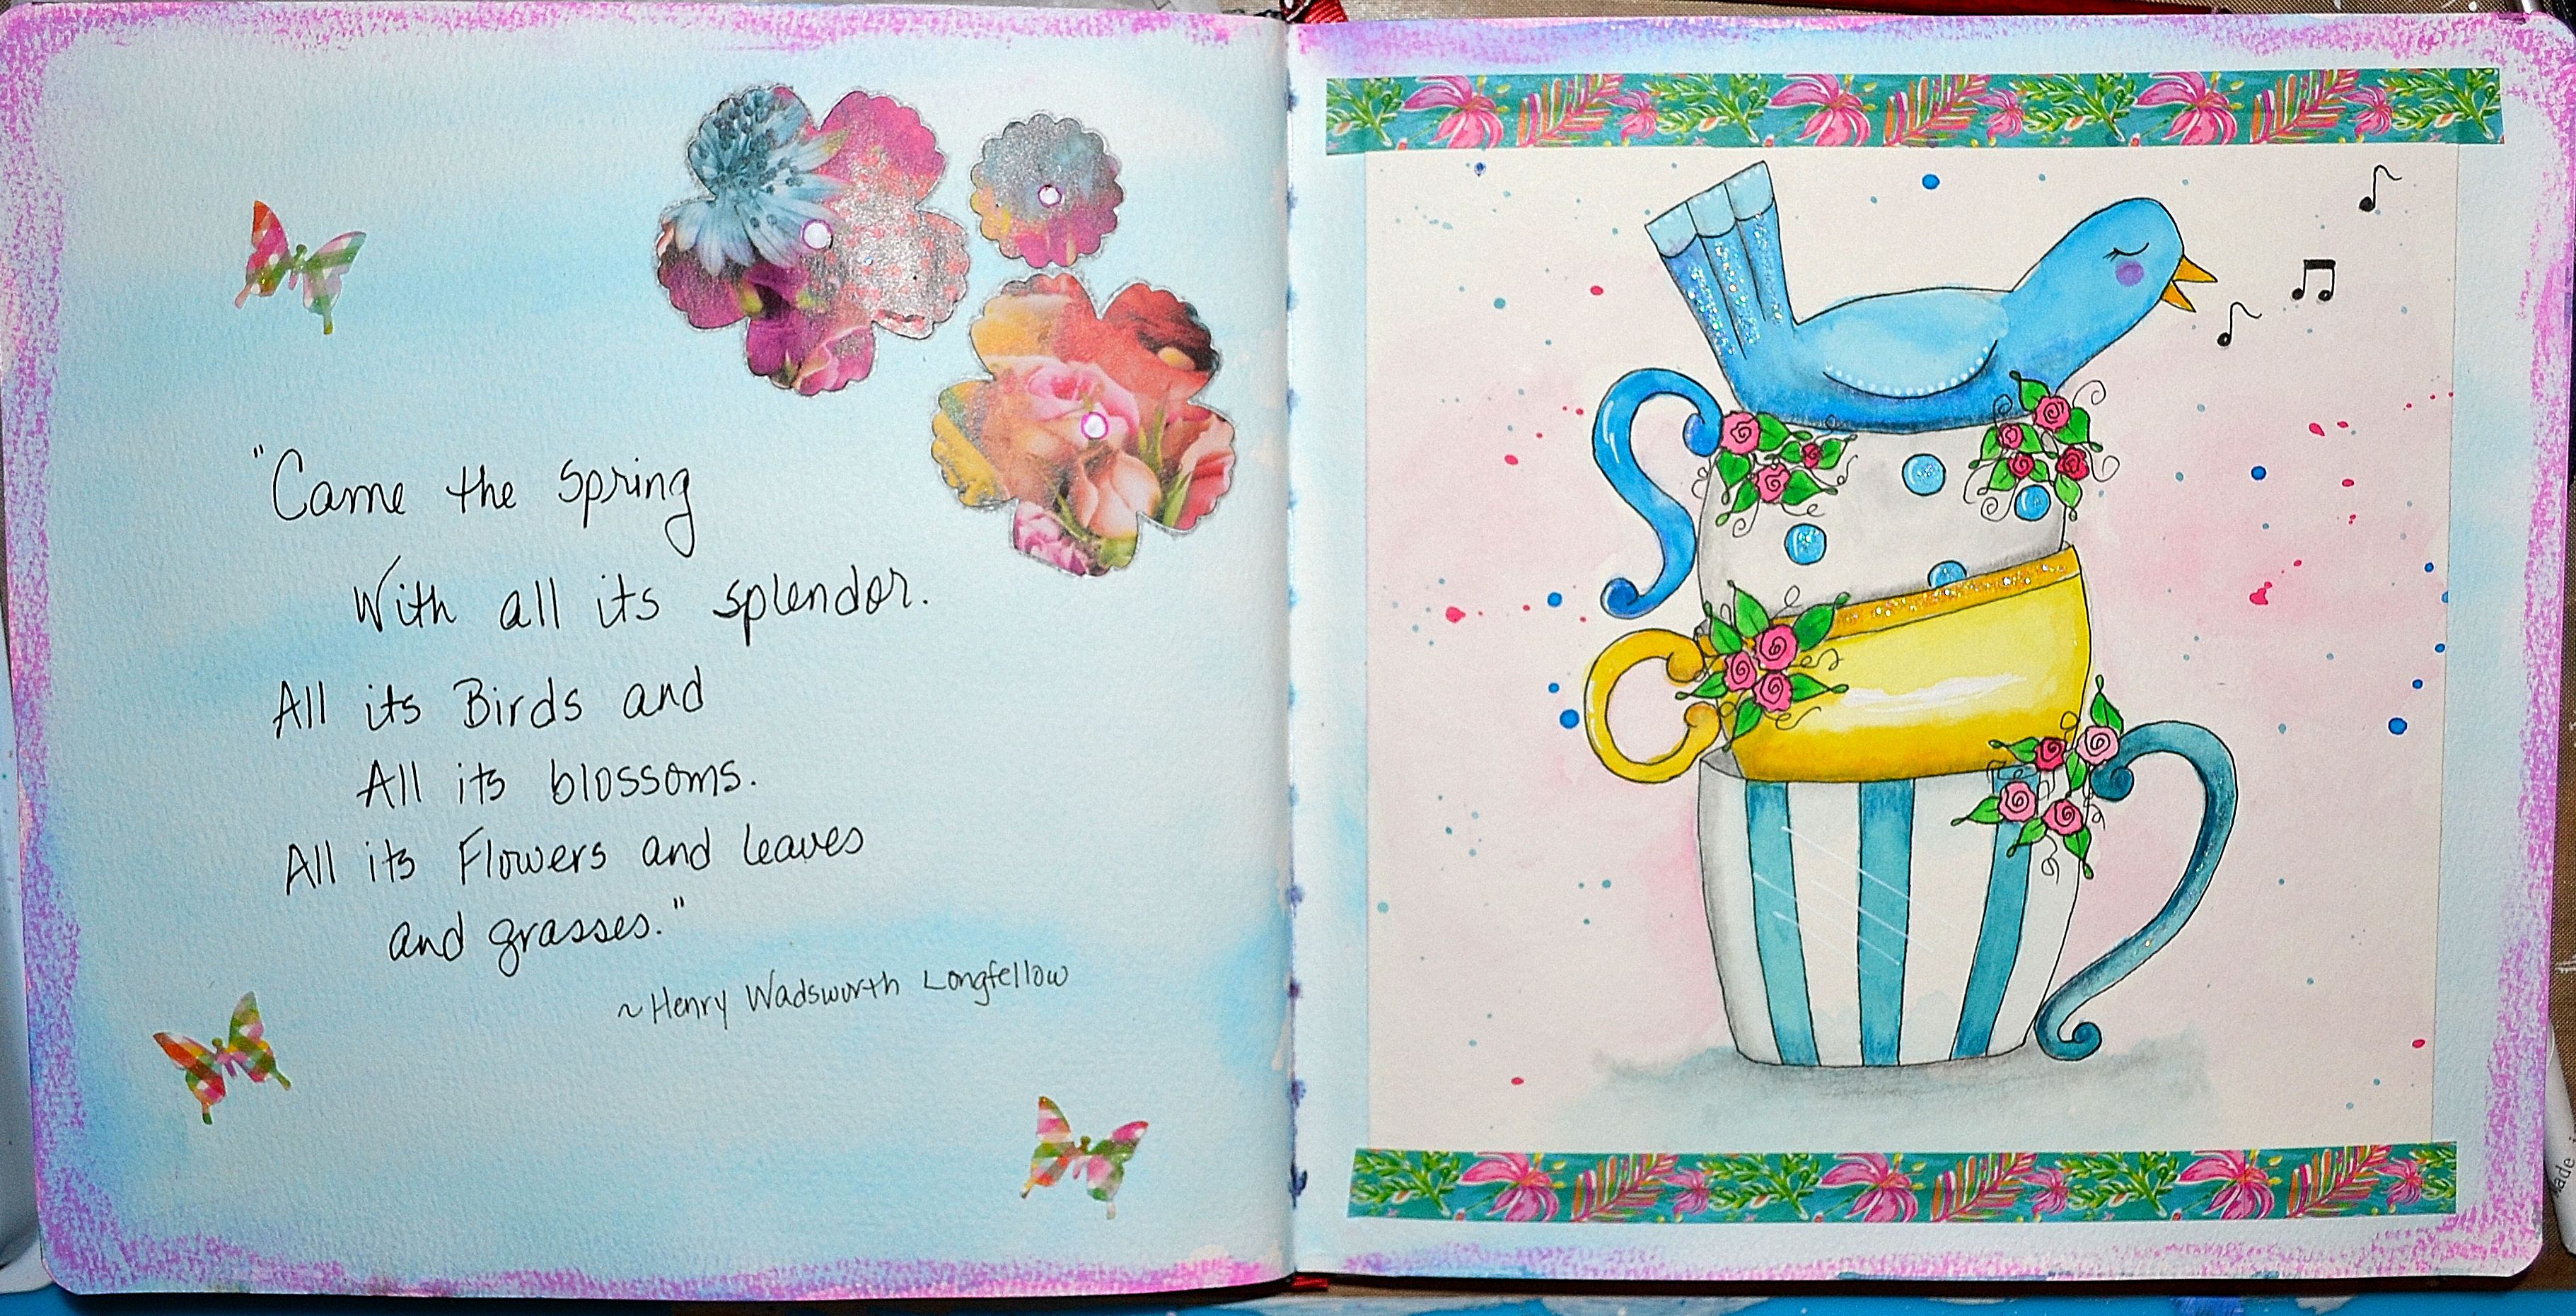 "Came the Spring
With all its splendor.
All its Birds and
All its blossoms.
All its Flowers and leaves
and grasses."
~Henry Wadsworth Longfellow